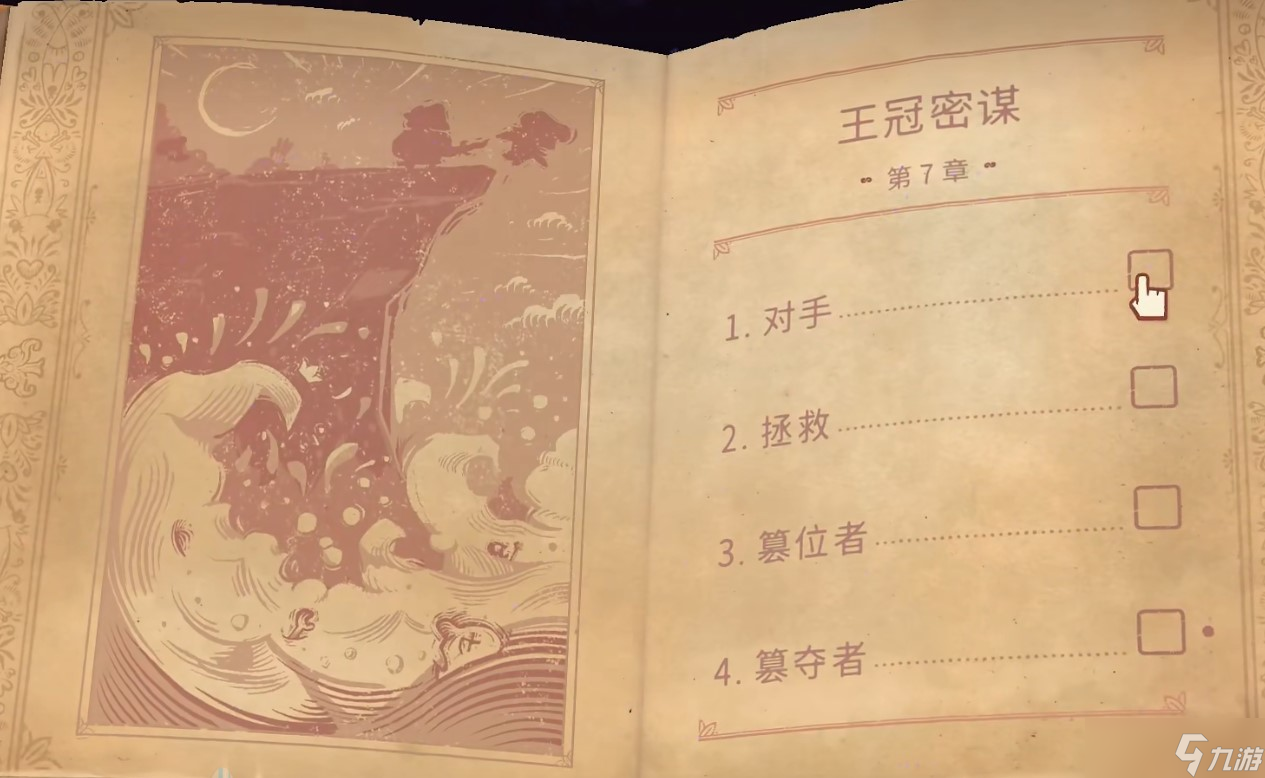 王冠密谋
第7章
1. 对手
2. 拯救
3. 篡位者
4. 篡夺者
九游